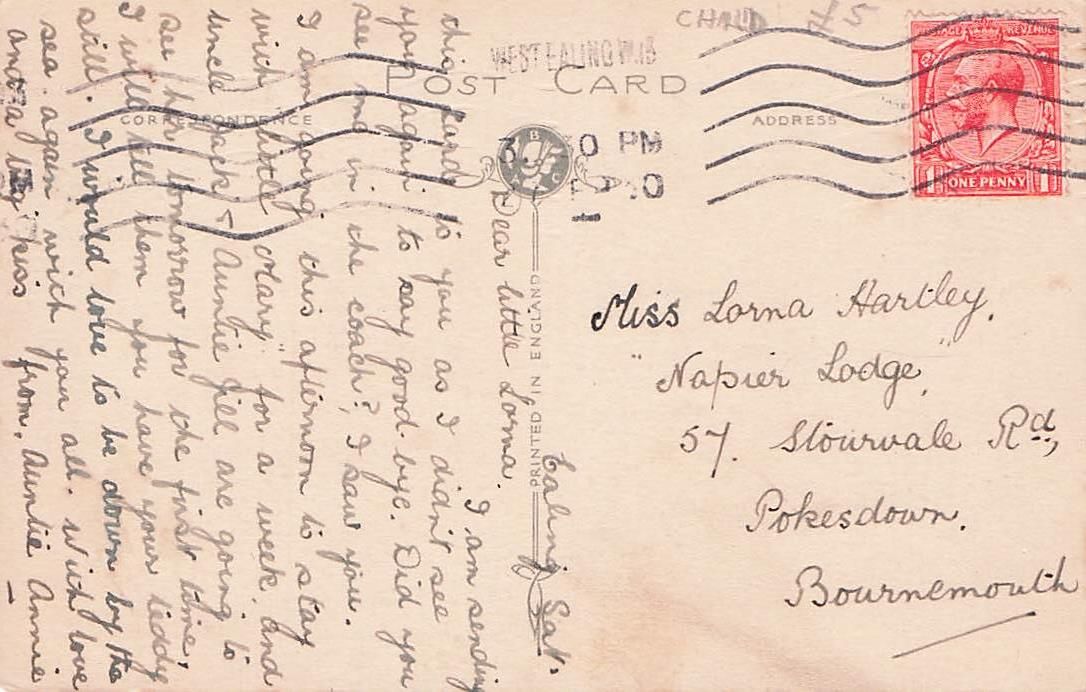 CHAUD #5
WEST EALING W.13
POST CARD
CORRESPONDENCE
ADDRESS
POSTAGE REVENUE
ONE PENNY
PM
PRINTED IN ENGLAND
Ealing Sat.
Dear little Lorna.
I am sending
this card to you as I didn't see
you again to say good-bye. Did you
see me in the coach? I saw you.
I am going this afternoon to stay
with "little Mary" for a week and
Uncle Jack & Auntie Jill are going to
see her tomorrow for the first time,
I will tell them you have your teddy
still. I would love to be down by the
sea again with you all. With love
and a big kiss from. Auntie Annie
Miss Lorna Hartley.
"Napier Lodge",
57. Stourvale Rd,
Pokesdown.
Bournemouth